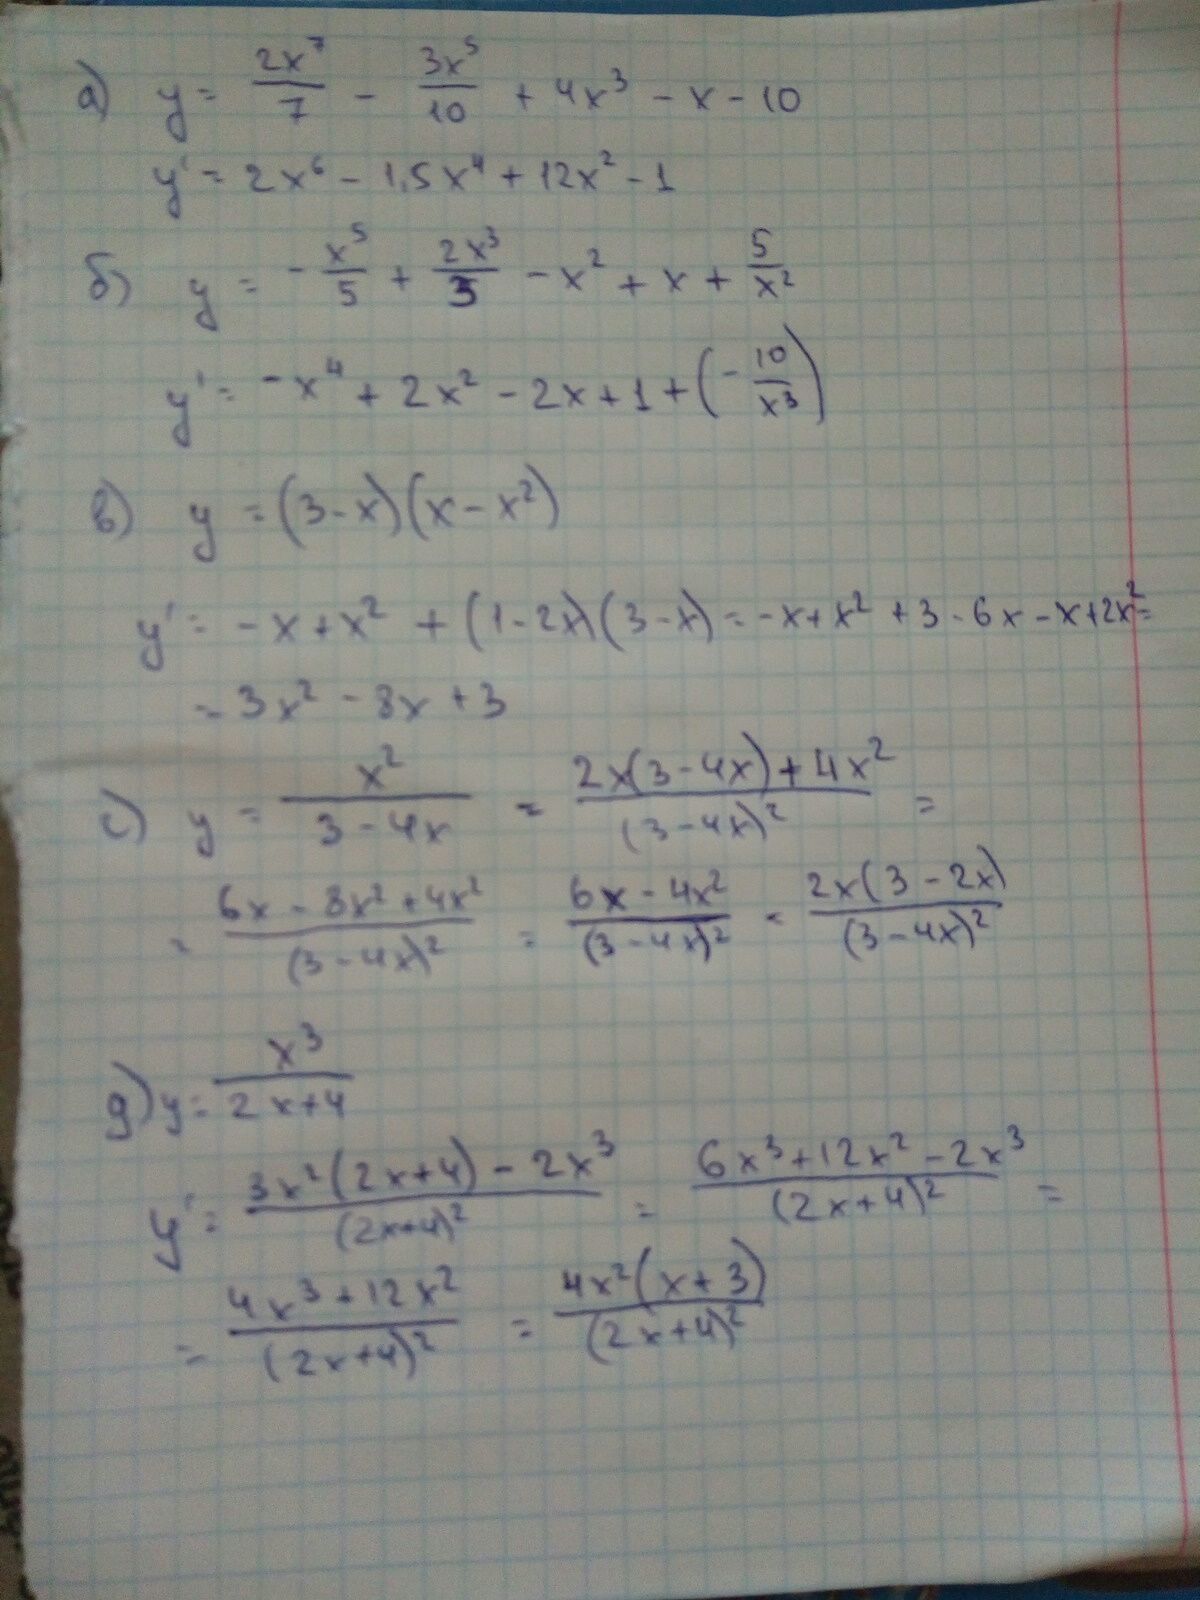 а) y = 2x⁷/7 - 3x⁵/10 + 4x³ - x - 10
y' = 2x⁶ - 1,5x⁴ + 12x² - 1
б) y = - x⁵/5 + 2x³/3 - x² + x + 5/x²
y' = -x⁴ + 2x² - 2x + 1 + (- 10/x³)
в) y = (3-x)(x-x²)
y' = -x+x² + (1-2x)(3-x) = -x+x² + 3 - 6x - x + 2x² =
= 3x² - 8x + 3
с) y = x²/(3-4x) = (2x(3-4x)+4x²)/(3-4x)² =
= (6x - 8x² + 4x²)/(3-4x)² = (6x - 4x²)/(3-4x)² = 2x(3-2x)/(3-4x)²
g) y = x³/(2x+4)
y' = (3x²(2x+4) - 2x³)/(2x+4)² = (6x³+12x²-2x³)/(2x+4)² =
= (4x³+12x²)/(2x+4)² = 4x²(x+3)/(2x+4)²